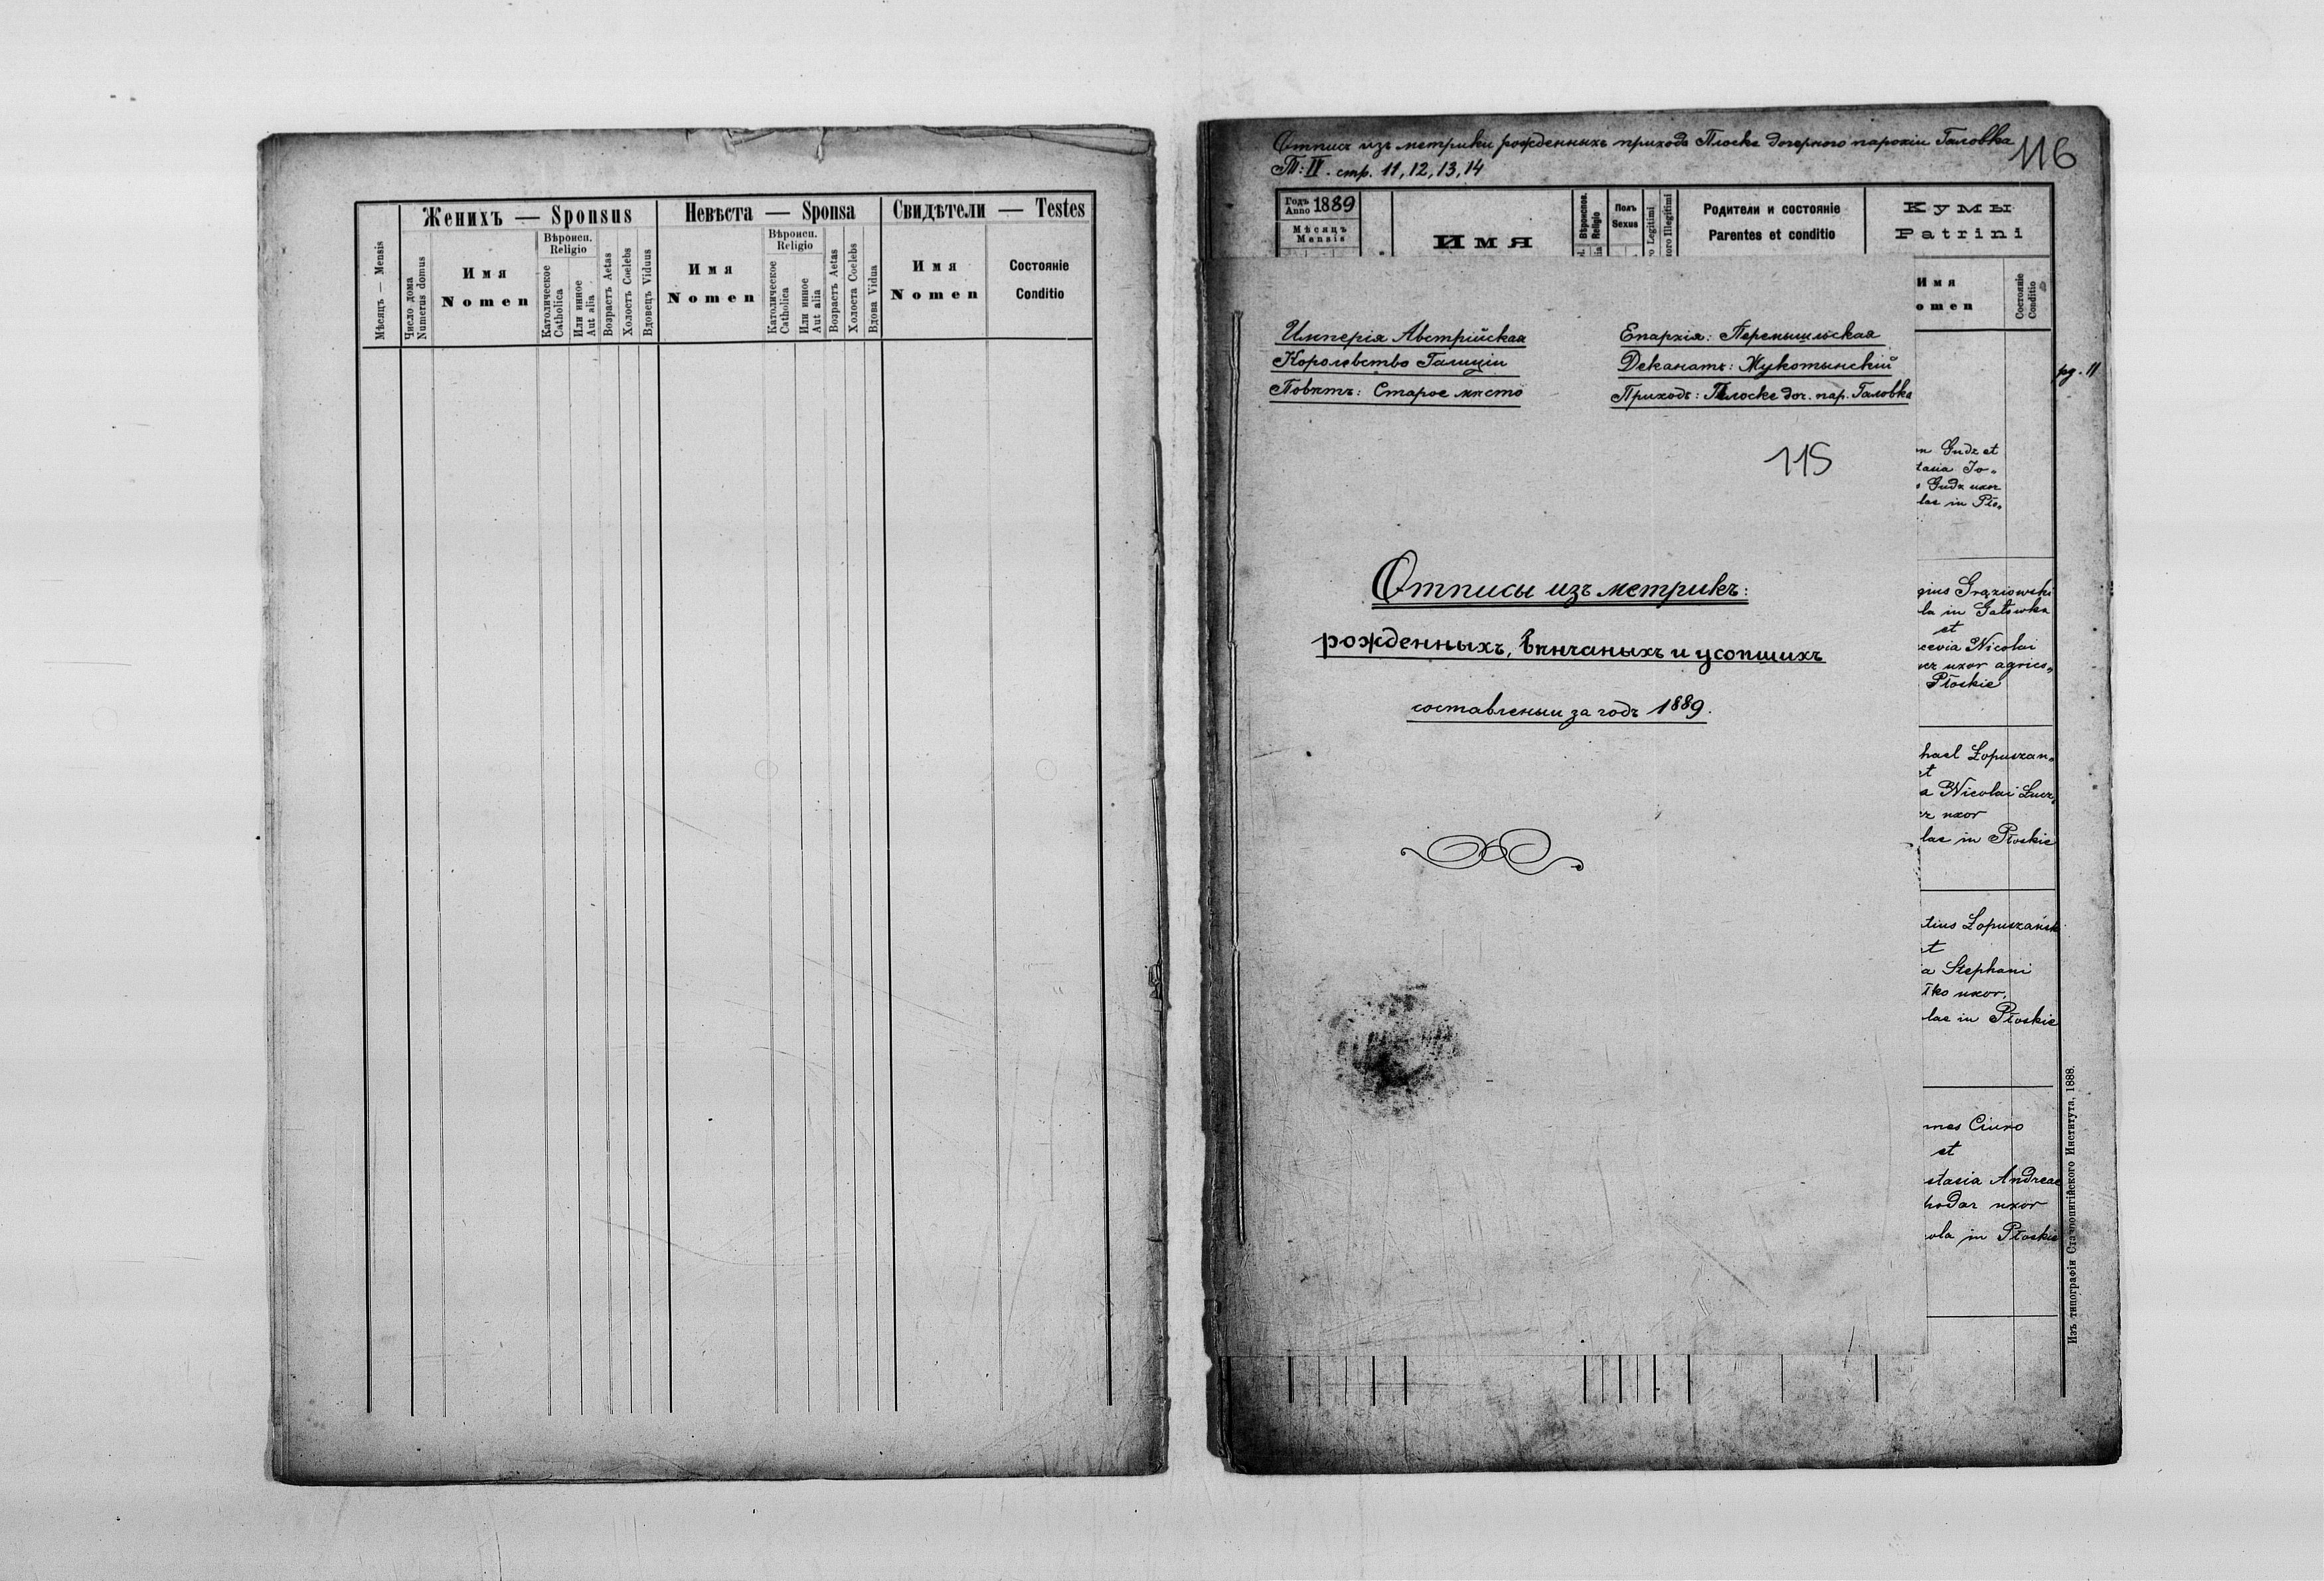 Женихъ — Sponsus
Невѣста — Sponsa
Свидѣтели — Testes
Мѣсяцъ — Mensis
Число дома
Numerus domus
Имя
Nomen
Вѣроисп.
Religio
Католическое
Catholica
Или инное
Aut alia
Возрастъ Aetas
Холостъ Coelebs
Вдовецъ Viduus
Имя
Nomen
Вѣроисп.
Religio
Католическое
Catholica
Или инное
Aut alia
Возрастъ Aetas
Холоста Coelebs
Вдова Vidua
Имя
Nomen
Состояніе
Conditio
Отпись изъ метрики рожденныхъ прихода Плоске дочерного парохіи Галовка
Т: II. стр. 11, 12, 13, 14
116
Годъ
Anno 1889
Мѣсяцъ
Mensis
Имя
Вѣроиспов.
Religio
Полъ
Sexus
Legitimi
Illegitimi
Родители и состояніе
Parentes et conditio
Кумы
Patrini
Имя
omen
Состояніе
Conditio
Имперія Австрійская
Королевство Галиціи
Повѣтъ: Старое мѣсто
Епархія: Перемышльская
Деканатъ: Жукотынскій
Приходъ: Плоске доч. пар. Галовка
115
Отписы изъ метрикъ:
рожденныхъ, вѣнчаныхъ и усопшихъ
составленыи за годъ 1889.
pg. 11
n Gudz et
tasia Jo„
Gudz uxor
lae in Pło„
gius Graziowski
la in Gałówka
et
cevia Nicolai
uxor agrico„
Płoskie
hael Łopuszan„
et
a Nicolai Łucz„
uxor
lae in Płoskie
tius Łopuszański
et
a Stephani
tko uxor,
lae in Płoskie
nnes Ciuno
et
stasia Andreae
hodar uxor
ola in Płoskie
Изъ типографіи Ставропигійского Института, 1888.